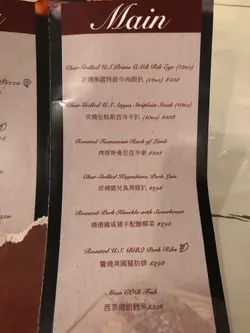 Main
Char-Grilled U.S Prime CAB Rib Eye (12oz)
炭燒美國特級牛肉眼扒 (12oz) $338
Char-Grilled U.S Angus Striploin Steak (10oz)
炭燒安格斯西冷牛扒 (10oz)
Roasted Tasmanian Rack of Lamb
烤塔斯曼尼亞羊架
Char-Grilled Kagoshima Pork Loin
炭燒鹿兒島黑豚扒
Roasted Pork Knuckle with Sauerkraut
燒德國咸豬手配酸椰菜
Roasted U.S. BBQ Pork Ribs
醬燒美國豬肋排 $298
Miso COD Fish
西京燒銀鱈魚 $318